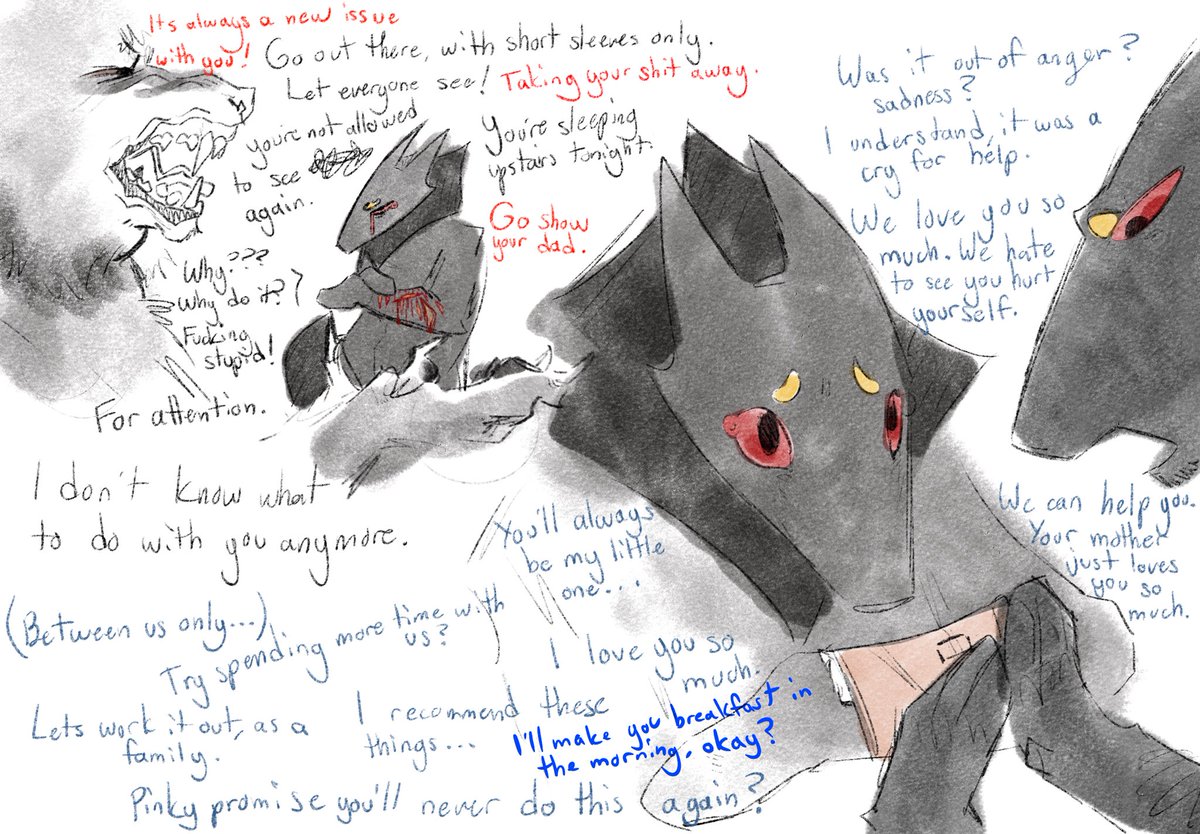 Its always a new issue
with you!
Go out there, with short sleeves only.
Let everyone see!
Taking your shit away.
you're not allowed
to see
again.
You're sleeping
upstairs tonight.
Go show
your dad.
Why???
why do it??
Fucking
stupid!
For attention.
I don't know what
to do with you anymore.
Was it out of anger?
sadness?
I understand, it was a
cry for help.
We love you so
much. We hate
to see you hurt
yourself.
We can help you.
Your mother
just loves
you so
much.
You'll always
be my little
one...
(Between us only...)
Try spending more time with
us?
I love you so
much.
Lets work it out, as a
family.
I recommend these
things...
I'll make you breakfast in
the morning, okay?
Pinky promise you'll never do this again?